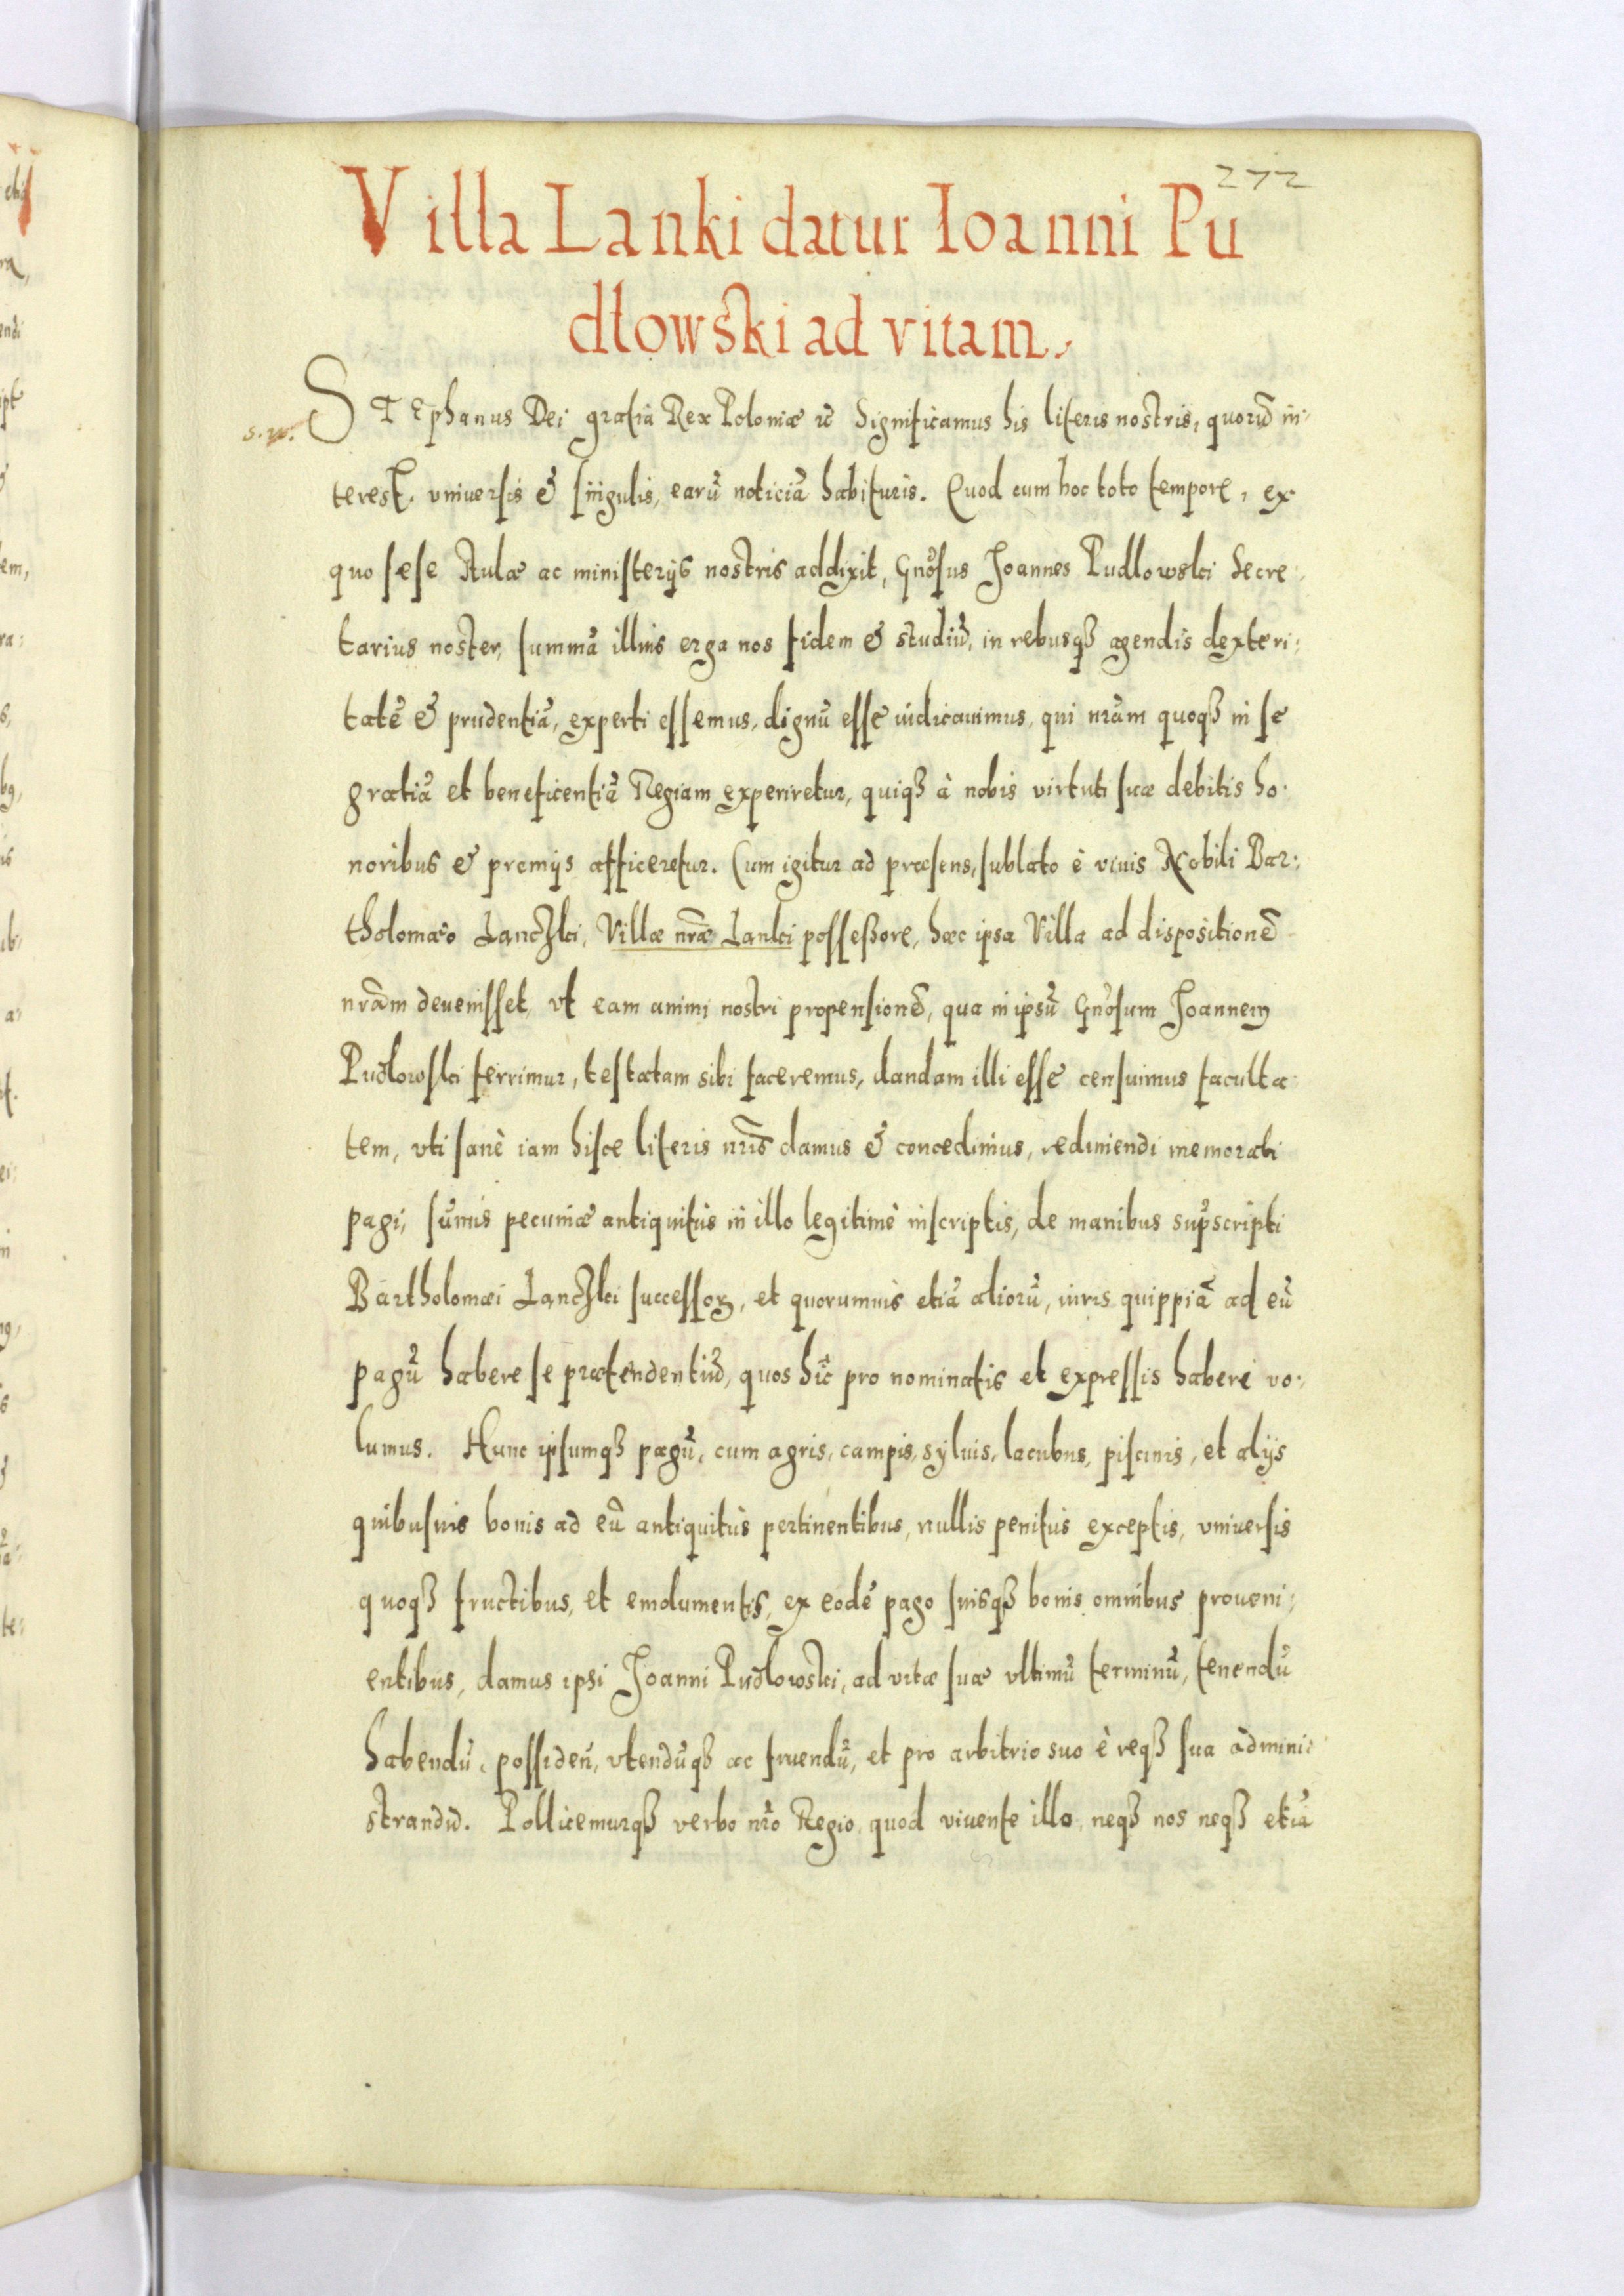 272
Villa Lanki datur Ioanni Pu
dłowski ad vitam.
s. w.
STEphanus Dei gratia Rex Poloniæ &c Significamus his literis nostris, quorũ in-
terest, vniuersis & singulis, earũ noticiã habituris. Quod cum hoc toto tempore, ex
quo sese Aulæ ac ministerijs nostris addixit, Gnõsus Joannes Pudlowski Secre-
tarius noster, summã illius erga nos fidem & studiũ, in rebusqꝫ agendis dexteri-
tatẽ & prudentiã, experti essemus, dignũ esse iudicauimus, qui nrãm quoqꝫ in se
gratiã et beneficentiã Regiam experiretur, quiqꝫ à nobis virtuti suæ debitis ho-
noribus & premijs afficeretur. Cum igitur ad præsens, sublato è viuis Nobili Bar-
tholomæo Lanczki, Villæ nræ̃ Lanki possessore, hæc ipsa Villa ad dispositionẽ
nrãm deuenisset, vt eam animi nostri propensionẽ, qua in ipsũ Gnõsum Joannem
Pudłowski ferrimur, testatam sibi faceremus, dandam illi esse censuimus faculta-
tem, vti sanè iam hisce literis nrĩs damus & concedimus, redimendi memorati
pagi, sũmis pecuniæ antiquitùs in illo legitimè inscriptis, de manibus supscripti
Bartholomæi Lanczki successoꝝ, et quorumuis etiã aliorũ, iuris quippiã ad eũ
pagũ habere se prætendentiũ, quos hic pro nominatis et expressis haberi vo-
lumus. Hunc ipsumqꝫ pagũ, cum agris, campis, syluis, lacubus, piscinis, et alijs
quibusuis bonis ad eũ antiquitùs pertinentibus, nullis penitus exceptis, vniuersis
quoqꝫ fructibus, et emolumentis, ex eodẽ pago suisqꝫ bonis omnibus proueni-
entibus, damus ipsi Joanni Pudłowski, ad vitæ suæ vltimũ terminũ, tenendũ
habendũ, possideñ, vtendũqꝫ ac fruendũ, et pro arbitrio suo è reqꝫ sua admini-
strandũ. Pollicemurqꝫ verbo nrõ Regio, quod viuente illo, neqꝫ nos neqꝫ etiã